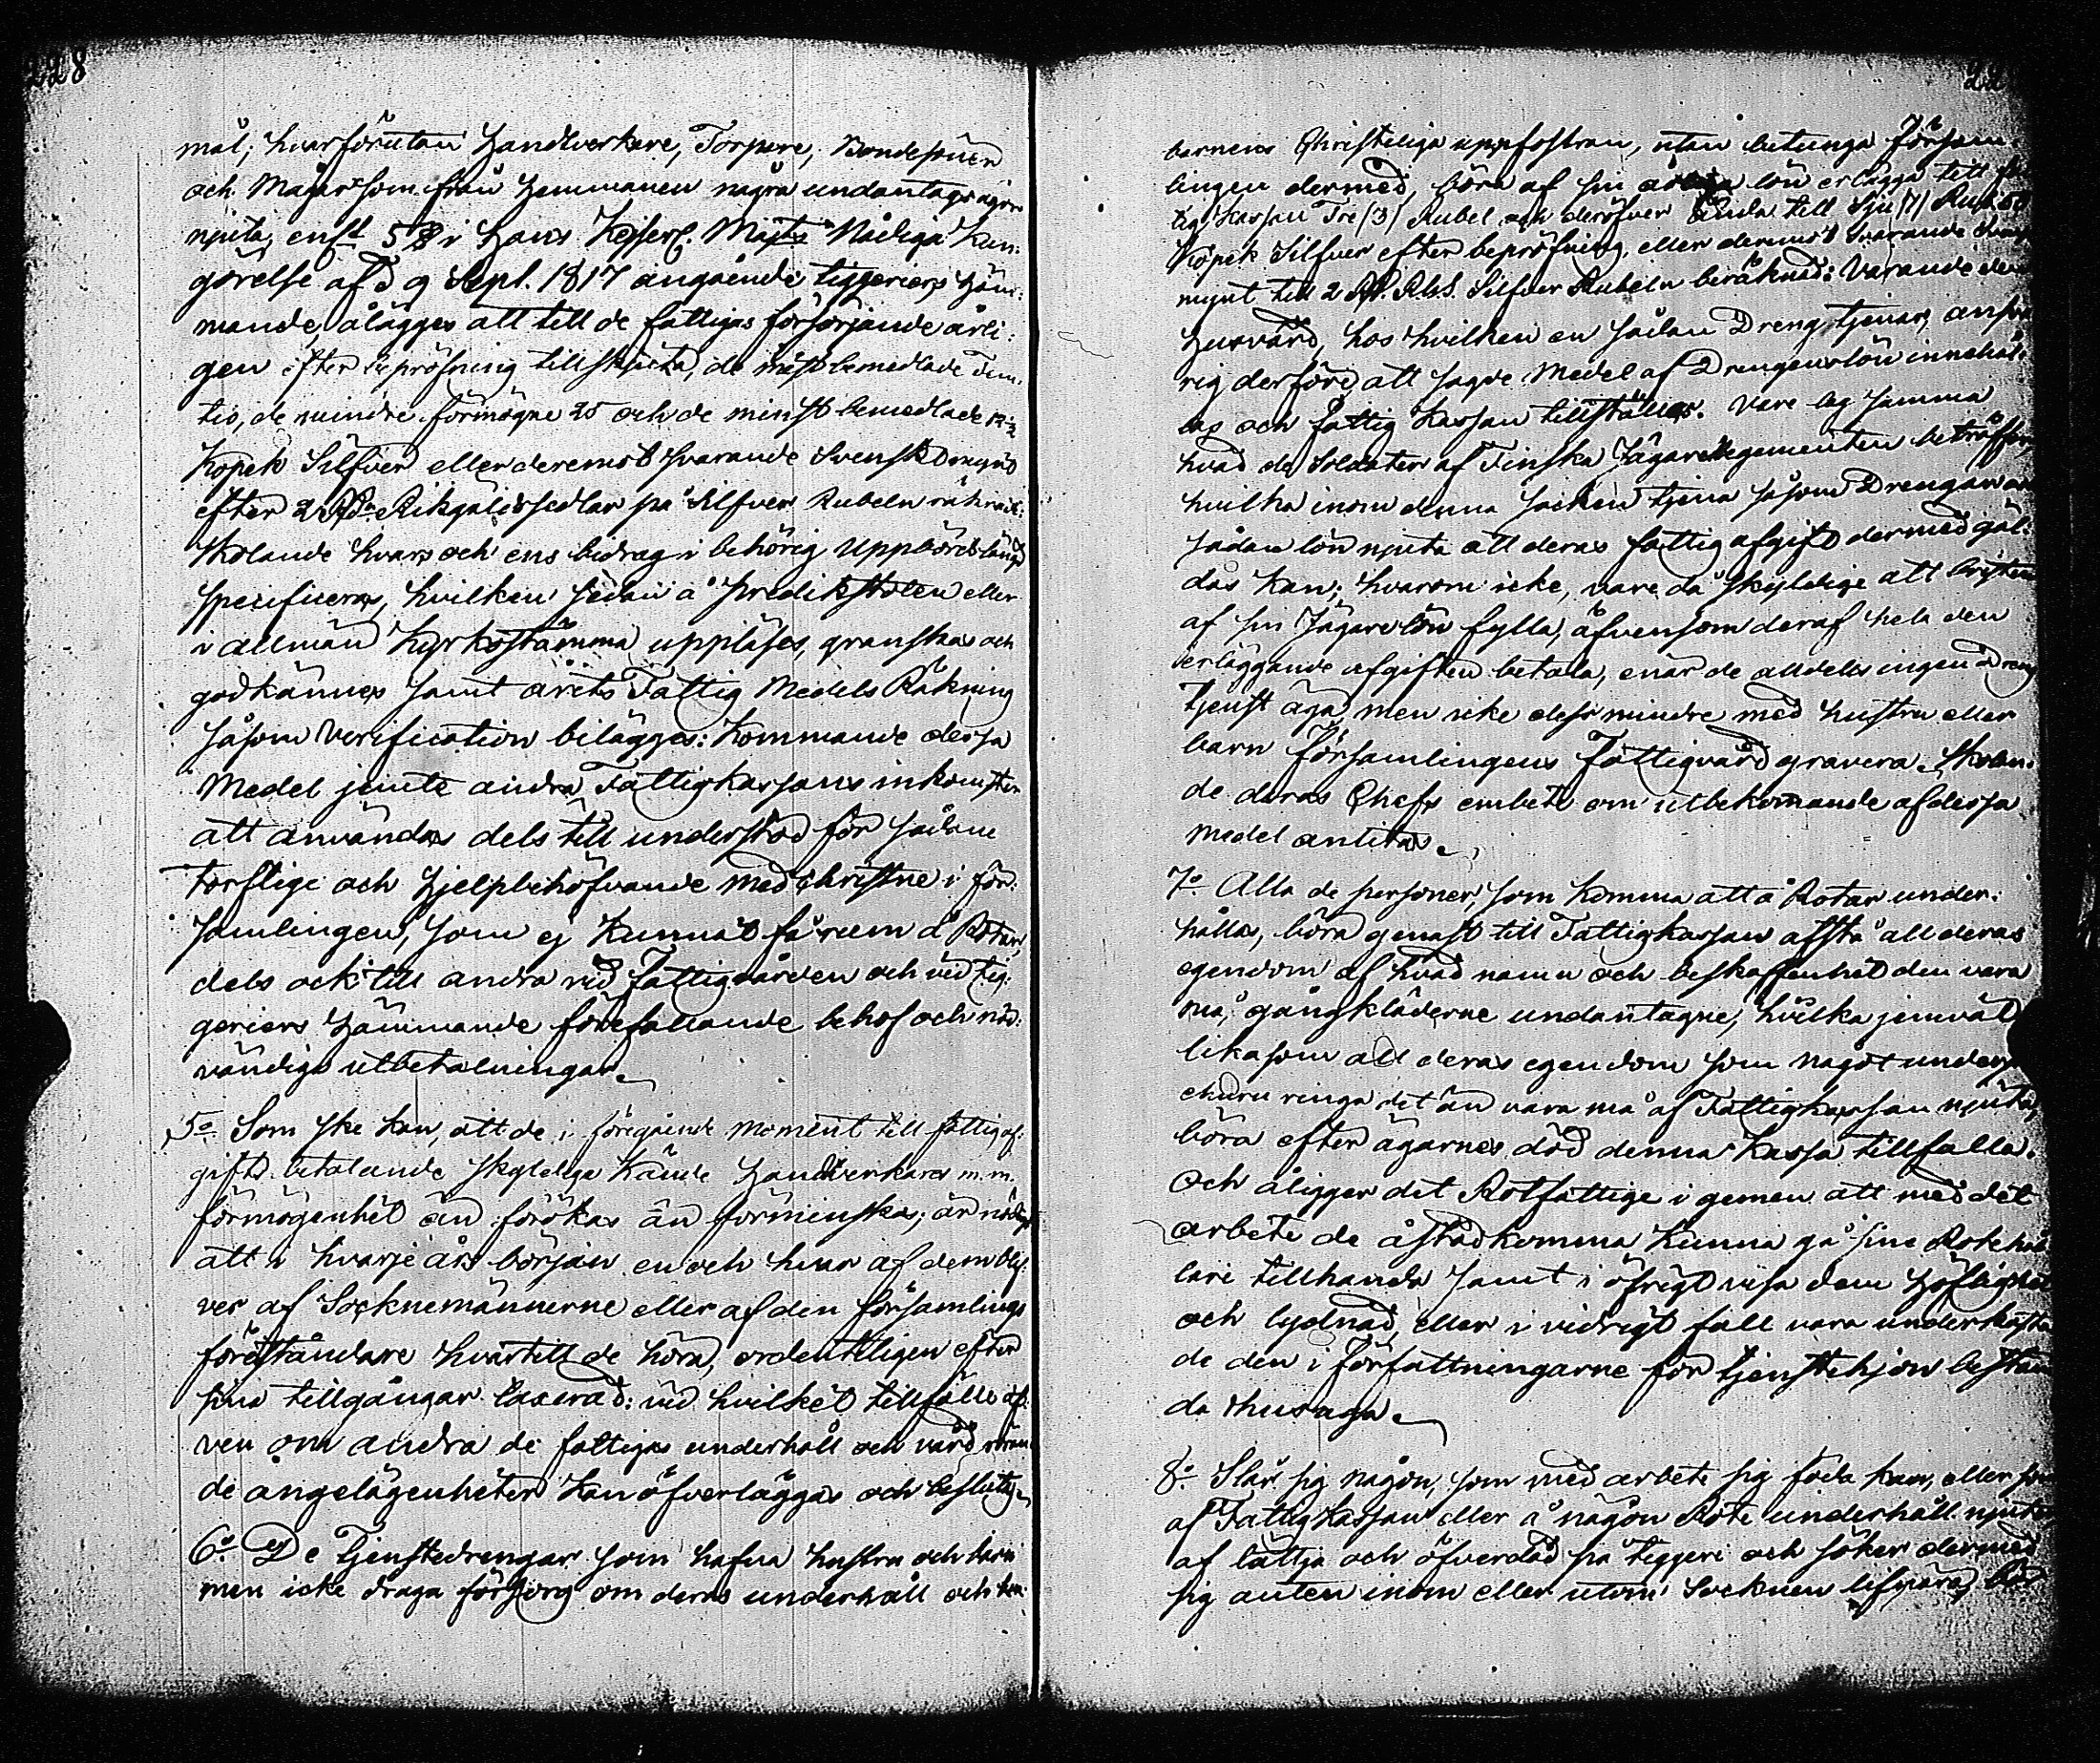 228
mål; hvarförutan Handtverkare, Torpare, Bondesöner
och Mågar som från Hemmanen några undantags ägor
njuta, enl. 5 § i Hans Kejserl. Majts Nådiga Kun-
görelse af d 9 Sept. 1817 angående tiggeriers häm-
mande, ålägges att till de fattigas försörjande årli-
gen efter bepröfning tillskjuta, de mest bemedlade Fem-
tio, de mindre förmögne 25 och de minst bemedlade 12½
Kopek Silfver eller deremot svarande Svenskt mynt
efter 2 Rdr Riksgäldssedlar på Silfver Rubeln räknadt:
skolande hvars och ens bidrag i behörig Uppbördslängd
specificeras, hvilken sedan å predikstolen eller
i allmän Kyrkostämma uppläses, granskas och
godkännes samt årets Fattig Medels Räkning
såsom Verification bilägges: Kommande dessa
Medel jemte andra Fattigkassans inkomster
att användas dels till understöd för sådane
torftige och hjelpbehöfvande medchristne i för-
samlingen, som ej kunnat få rum å Rotar,
dels ock till andra vid fattigvården och vid tig-
geriers hämmande förefallande behof och nöd-
vändiga utbetalningar.
5o Som ske kan, att de i föregående moment till fattigaf-
gifts betalande skyldige kände Handtverkares m.m.
förmögenhet än förökas än förminskas; är nödigt
att i hvarje års början en och hvar af dem blif-
ver af Socknemännerne eller af den församlings
föreståndare hvartill de höra, ordentligen efter
sina tillgångar taxerad: vid hvilket tillfälle äf-
ven om andra de fattigas underhåll och vård röran-
de angelägenheter kan öfverläggas och beslutas.
6o De Tjenstedrengar som hafva hustru och barn
men icke draga försorg om deras underhåll och
22
barnens Christeliga uppfostran, utan betunga försam-
lingen dermed, böra af sin årliga lön erlägga till fat-
tig Kassan Tre (3) Rubel och deröfver ända till Sju (7) Rub. 50
Kopek Silfver efter bepröfning, eller deremot svarande Svenskt
mynt till 2 Rd. R.G.S. Silfver Rubeln beräknad: Varande den
Husvärd, hos hvilken en sådan Dreng tjenar, ansva-
rig derföre, att sagde Medel af Drengens lön innehål-
las och fattig Kassan tillställes. Vare lag samma
hvad de Soldater af Finska Jägare Regementen beträffar,
hvilka inom denna Socken tjena såsom Drengar och
sådan lön njuta att deras fattig afgift dermed gäl-
das kan; hvarom icke, vare da skyldige att bristen
af sin Jägare lön fylla, äfvensom deraf hela den
erläggande afgiften betala, enär de alldeles ingen Dreng
tjenst äga, men icke dess mindre med hustru eller
barn Församlingens Fattigvård gravera. Skolan-
de deras Chefs embete om utbekomande af dessa
medel anlitas.
7o Alla de personer, som komma att å Rotar under-
hållas, böra genast till Fattigkassan afstå all deras
egendom af hvad namn och beskaffenhet den vara
må, gångkläderne undantagne, hvilka jemväl
likasom all deras egendom som något underst
ehuru ringa det än vara må af Fattigkassan njuta,
böra efter ägarnes död denna Kassa tillfalla.
Och åligger det Rotfattige i gemen att med det
arbete de åstadkomma kunna gå sine Rotehål-
lare tillhanda samt i öfrigt visa dem höflighet
och lydnad, eller i vidrigt fall vara underkasta-
de den i författningarne för tjenstehjon bestäm-
da husaga.
8o Slår sig någon, som med arbete sig föda kan, eller som
af Fattig Kassan eller å någon Rote underhåll njuter
af lättja och öfverdåd på tiggeri och söker dermed
sig anten inom eller utom Socknen lifnära,